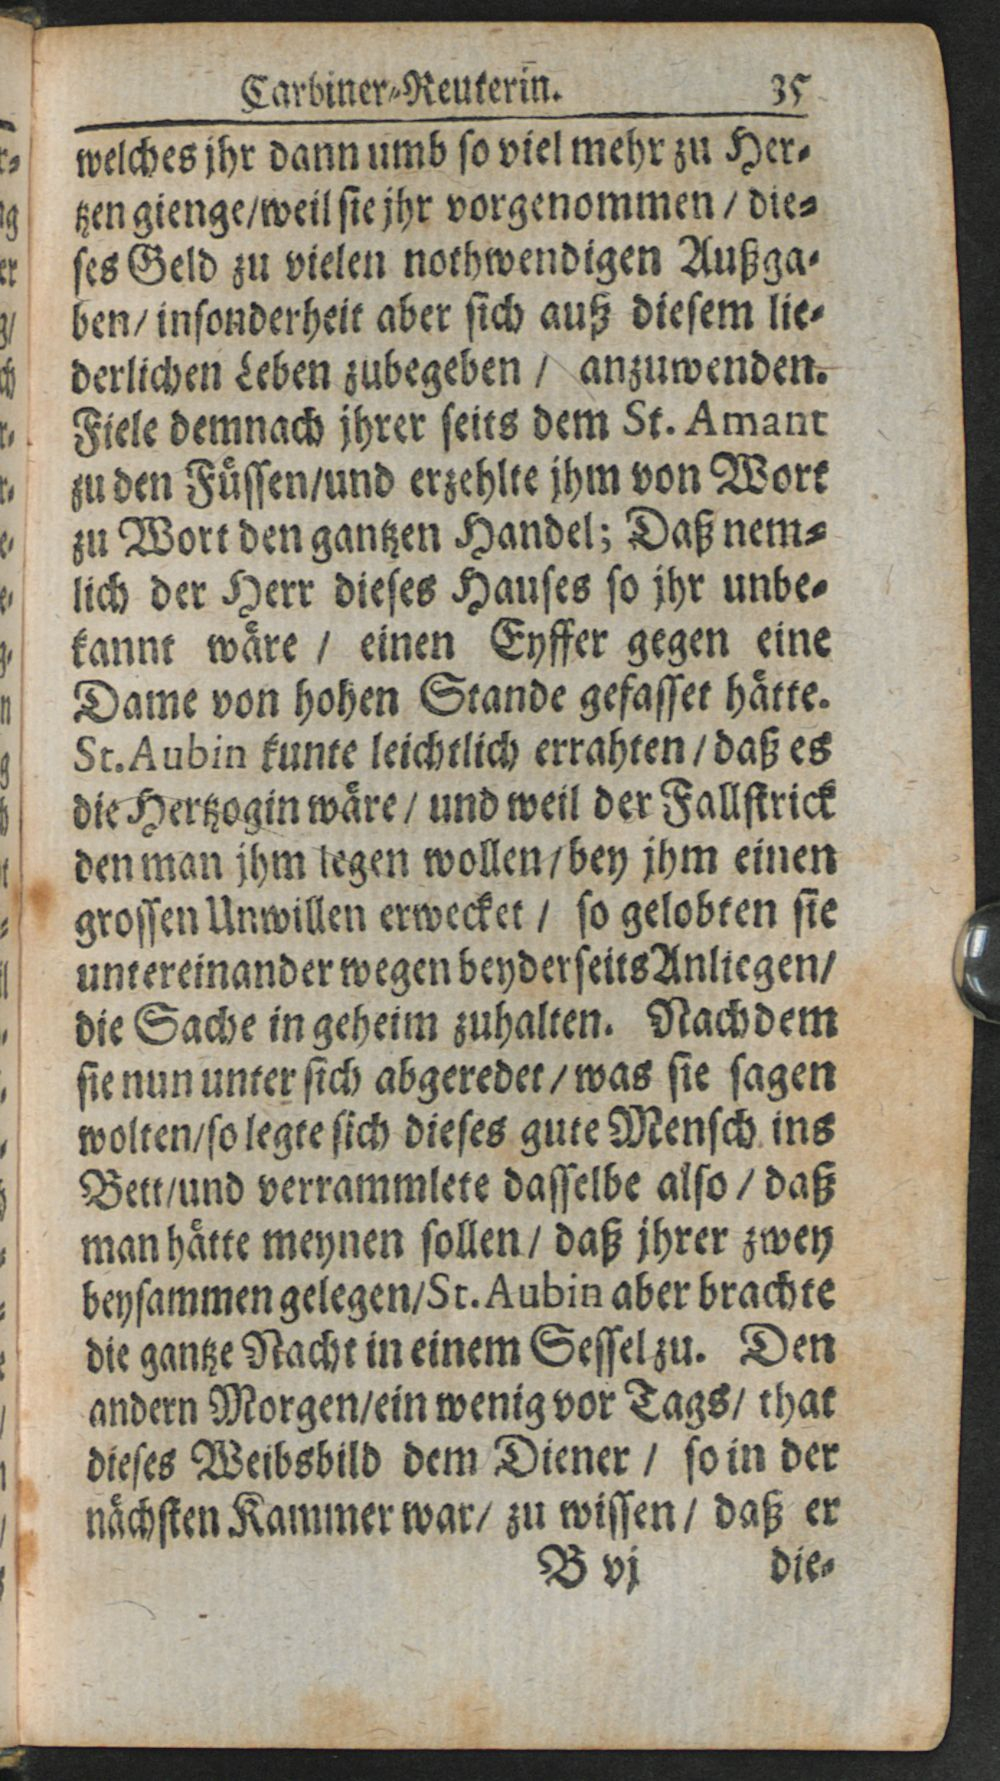 Carbiner-Reuterin̄. 35
welches jhr dann umb so viel mehr zu Her-
tzen gienge/weil sie jhr vorgenommen / die-
ses Geld zu vielen nothwendigen Außga-
ben/ insonderheit aber sich auß diesem lie-
derlichen Leben zubegeben / anzuwenden.
Fiele demnach jhrer seits dem St. Amant
zu den Fuͤssen/und erzehlte jhm von Wort
zu Wort den gantzen Handel; Daß nem-
lich der Herr dieses Hauses so jhr unbe-
kannt waͤre / einen Eyffer gegen eine
Dame von hohen Stande gefasset haͤtte.
St. Aubin kunte leichtlich errahten / daß es
die Hertzogin waͤre / und weil der Fallstrick
den man jhm legen wollen / bey jhm einen
grossen Unwillen erwecket / so gelobten sie
untereinander wegen beyderseits Anliegen/
die Sache in geheim zuhalten. Nachdem
sie nun unter sich abgeredet / was sie sagen
wolten/so legte sich dieses gute Mensch ins
Bett/und verrammlete dasselbe also / daß
man haͤtte meynen sollen / daß jhrer zwey
beysammen gelegen/St. Aubin aber brachte
die gantze Nacht in einem Sessel zu. Den
andern Morgen/ein wenig vor Tags/ that
dieses Weibsbild dem Diener / so in der
naͤchsten Kammer war/ zu wissen / daß er
B vj die-